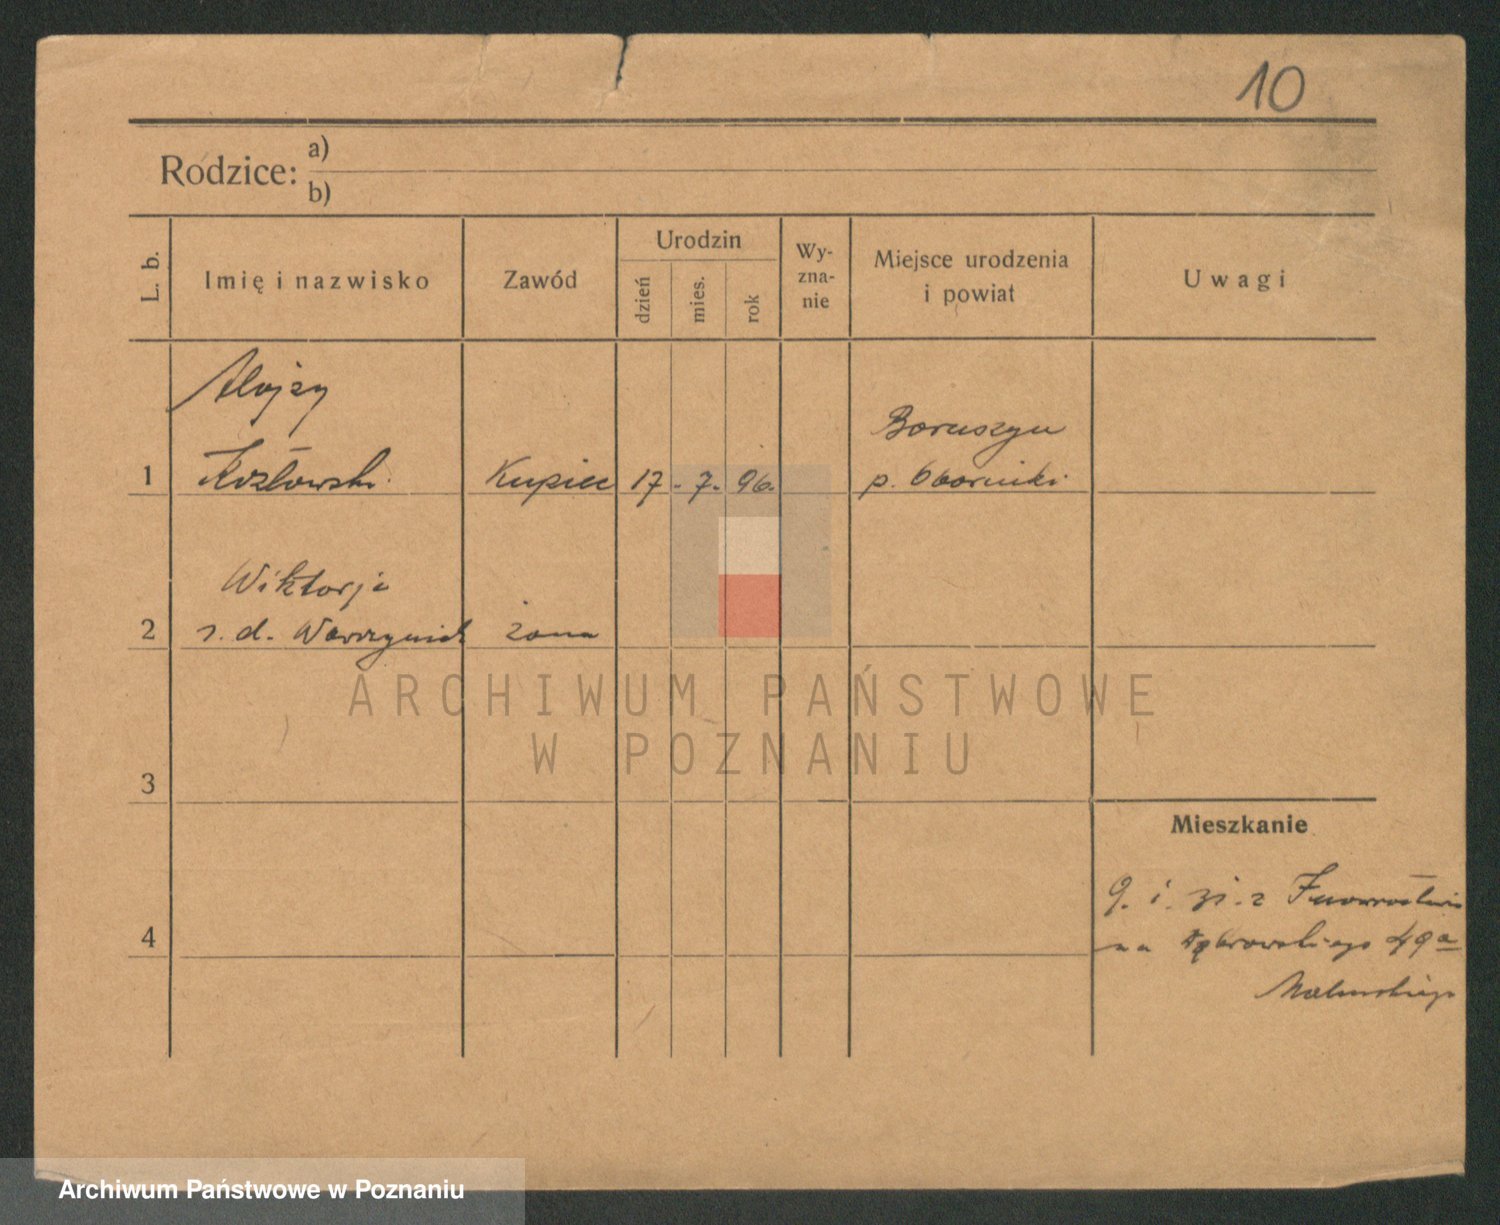 10
Rodzice: a)
b)
L. b.
Imię i nazwisko
Zawód
Urodzin
dzień
mies.
rok
Wy-
zna-
nie
Miejsce urodzenia
i powiat
Uwagi
Alojzy
1 Kozłowski Kupiec 17. 7. 96.
Boruszyn
p. Oborniki
Wiktorja
2 z. d. Wawrzyniak żona
3
4
Mieszkanie
9. i. z
na Dąbrowskiego 49a
ARCHIWUM PAŃSTWOWE
W POZNANIU
Archiwum Państwowe w Poznaniu